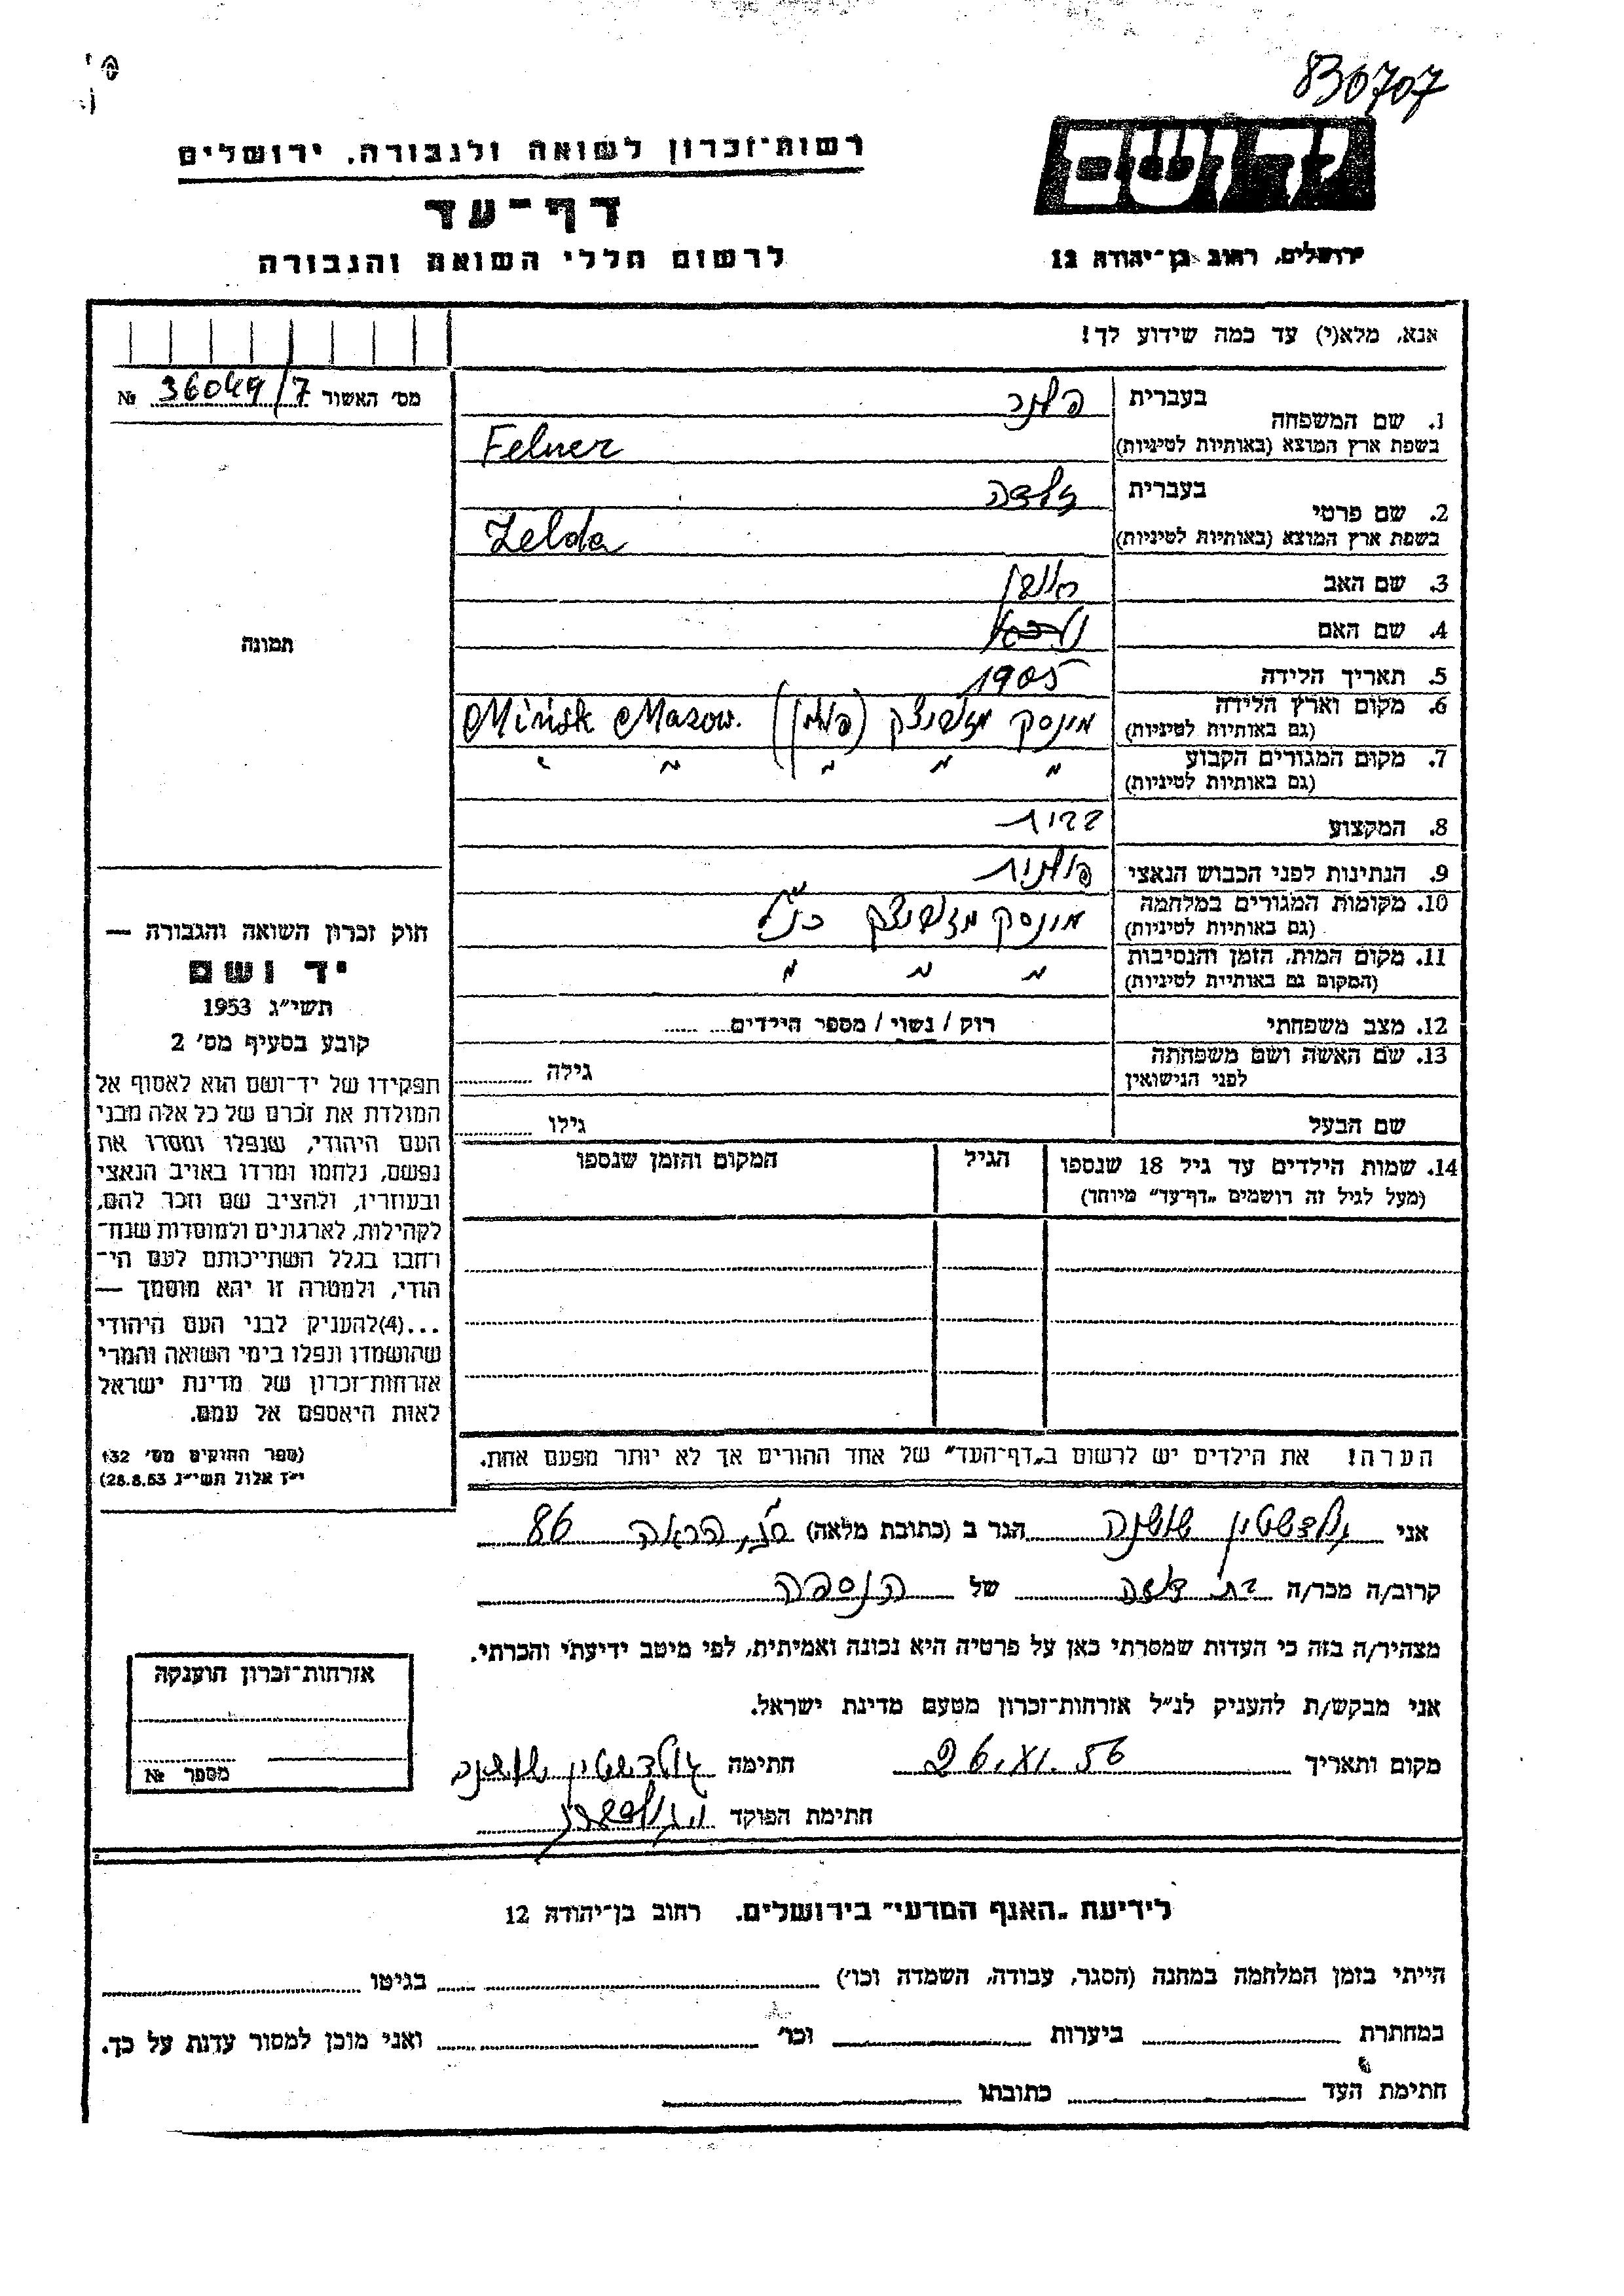 830707
רשות־זכרון לשואה ולגבורה, ירושלים
דף־עד
לרשום חללי השואה והגבורה
יד ושם
ירושלים, רחוב בן־יהודה 12
אנא, מלא(י) עד כמה שידוע לך!
מס׳ האשור 36049/7 №
1. שם המשפחה
בעברית פלנר
בשפת ארץ המוצא (באותיות לטיניות) Felner
2. שם פרטי
בעברית זלדה
בשפת ארץ המוצא (באותיות לטיניות) Zelda
3. שם האב
4. שם האם
5. תאריך הלידה 1905
6. מקום וארץ הלידה מינסק מזובצק (פולין) Mińsk Mazow.
(גם באותיות לטיניות)
7. מקום המגורים הקבוע " " " " "
(גם באותיות לטיניות)
8. המקצוע
9. הנתינות לפני הכבוש הנאצי פולנית
10. מקומות המגורים במלחמה מינסק מזובצק כנ"ל
(גם באותיות לטיניות)
11. מקום המות, הזמן והנסיבות " " "
(המקום גם באותיית לטיניות)
12. מצב משפחתי רוק / נשוי / מספר הילדים
13. שם האשה ושם משפחתה
לפני הנישואין גילה
שם הבעל גילו
14. שמות הילדים עד גיל 18 שנספו
(מעל לגיל זה רושמים „דף־עד״ מיוחד)
הגיל
המקום והזמן שנספו
הערה! את הילדים יש לרשום ב„דף־העד״ של אחד ההורים אך לא יותר מפעם אחת.
תמונה
חוק זכרון השואה והגבורה —
יד ושם
תשי״ג 1953
קובע בסעיף מס׳ 2
תפקידו של יד־ושם הוא לאסוף אל
המולדת את זכרם של כל אלה מבני
העם היהודי, שנפלו ומסרו את
נפשם, נלחמו ומרדו באויב הנאצי
ובעוזריו, ולהציב שם וזכר להם,
לקהילות, לארגונים ולמוסדות שנח־
רחבו בגלל השתייכותם לעם הי־
הודי, ולמטרה זו יהא מוסמך —
...(4)להעניק לבני העם היהודי
שהושמדו ונפלו בימי השואה והמרי
אזרחות־זכרון של מדינת ישראל
לאות היאספם אל עמם.
(ספר החוקים מס׳ 132
י״ז אלול תשי״ג 28.8.53)
אני גולדשטיין שושנה הגר ב (כתובת מלאה) 86
קרוב/ה מכר/ה בת דודה של הנספה
מצהיר/ה בזה כי העדות שמסרתי כאן על פרטיה היא נכונה ואמיתית, לפי מיטב ידיעתי והכרתי.
אני מבקש/ת להעניק לנ״ל אזרחות־זכרון מטעם מדינת ישראל.
מקום ותאריך חתימה גולדשטיין שושנה
חתימת הפוקד
אזרחות־זכרון הוענקה
מספר №
לידיעת „האגף המדעי״ בירושלים. רחוב בן־יהודה 12
הייתי בזמן המלחמה במחנה (הסגר, עבודה, השמדה וכו׳) בגיטו
במחתרת ביערות וכו׳ ואני מוכן למסור עדות על כך.
חתימת העד כתובתו